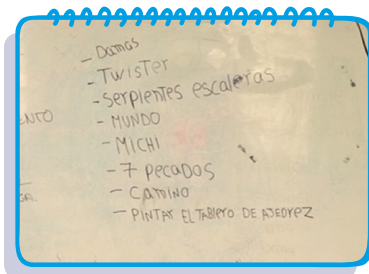 - Damas
- Twister
- Serpientes escaleras
ENTO
- MUNDO
- MICHI
- 7 pecados
- CAMINO
- PINTAR EL TABLERO DE AJEDREZ